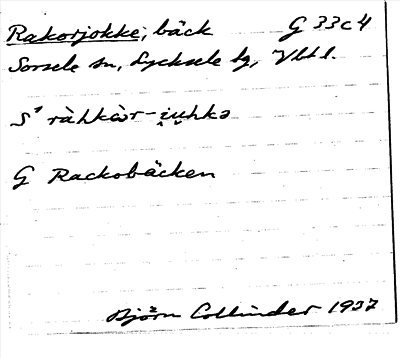 Rakorjokke, bäck G 33c4
Sorsele sn, Lycksele lg, Vbtl.
S' ràhkàr-i̯uhkə
G Rackobäcken
Björn Collinder 1937